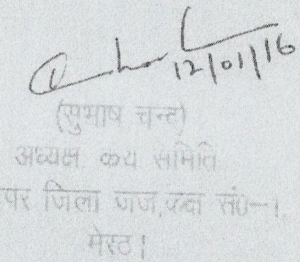 12/01/16
(सुभाष चन्द)
अध्यक्ष, क्रय समिति
पर जिला जज, कक्ष सं०-1,
मेरठ।